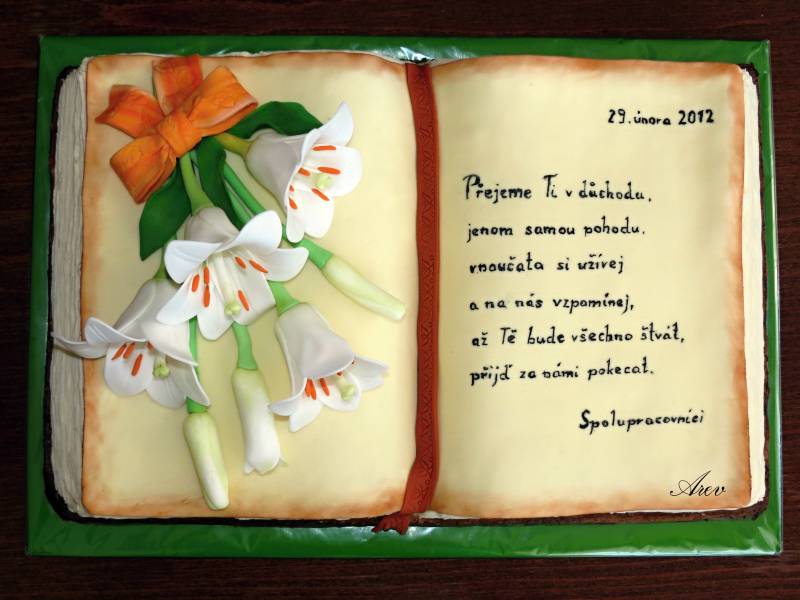 29. února 2012
Přejeme Ti v důchodu,
jenom samou pohodu.
vnoučata si užívej
a na nás vzpomínej,
až Tě bude všechno štvát,
přijď za námi pokecat.
Spolupracovníci
Arev